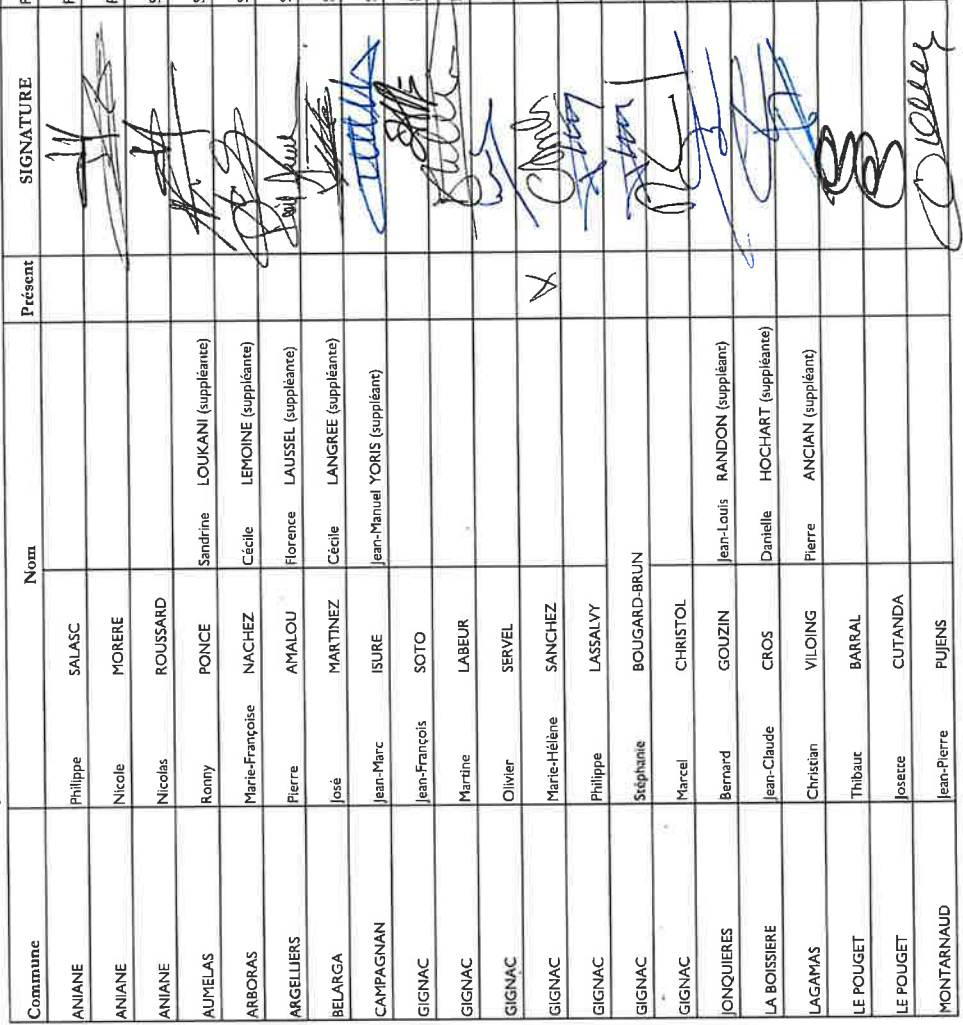 Commune Nom Présent SIGNATURE
ANIANE Philippe SALASC
ANIANE Nicole MORERE
ANIANE Nicolas ROUSSARD
AUMELAS Ronny PONCE Sandrine LOUKANI (suppléante)
ARBORAS Marie-Françoise NACHEZ Cécile LEMOINE (suppléante)
ARGELLIERS Pierre AMALOU Florence LAUSSEL (suppléante)
BELARGA José MARTINEZ Cécile LANGREE (suppléante)
CAMPAGNAN Jean-Marc ISURE Jean-Manuel YORIS (suppléant)
GIGNAC Jean-François SOTO
GIGNAC Martine LABEUR
GIGNAC Olivier SERVEL
GIGNAC Marie-Hélène SANCHEZ X
GIGNAC Philippe LASSALVY
GIGNAC Stéphanie BOUGARD-BRUN
GIGNAC Marcel CHRISTOL
JONQUIERES Bernard GOUZIN Jean-Louis RANDON (suppléant)
LA BOISSIERE Jean-Claude CROS Danielle HOCHART (suppléante)
LAGAMAS Christian VILOING Pierre ANCIAN (suppléant)
LE POUGET Thibaut BARRAL
LE POUGET Josette CUTANDA
MONTARNAUD Jean-Pierre PUJENS